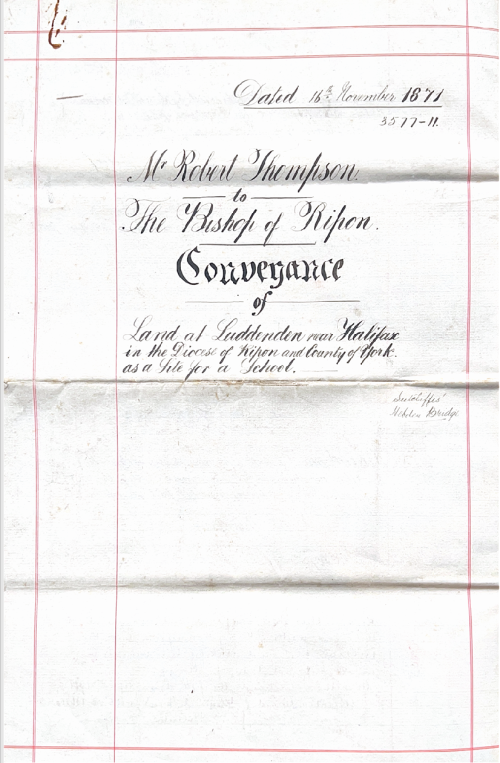 Dated 16th November 1871
3577-11.
Mr Robert Thompson.
to
The Bishop of Ripon.
Conveyance
of
Land at Luddenden near Halifax
in the Diocese of Ripon and County of York.
as a Site for a School.
Sutcliffes'
Hebden Bridge